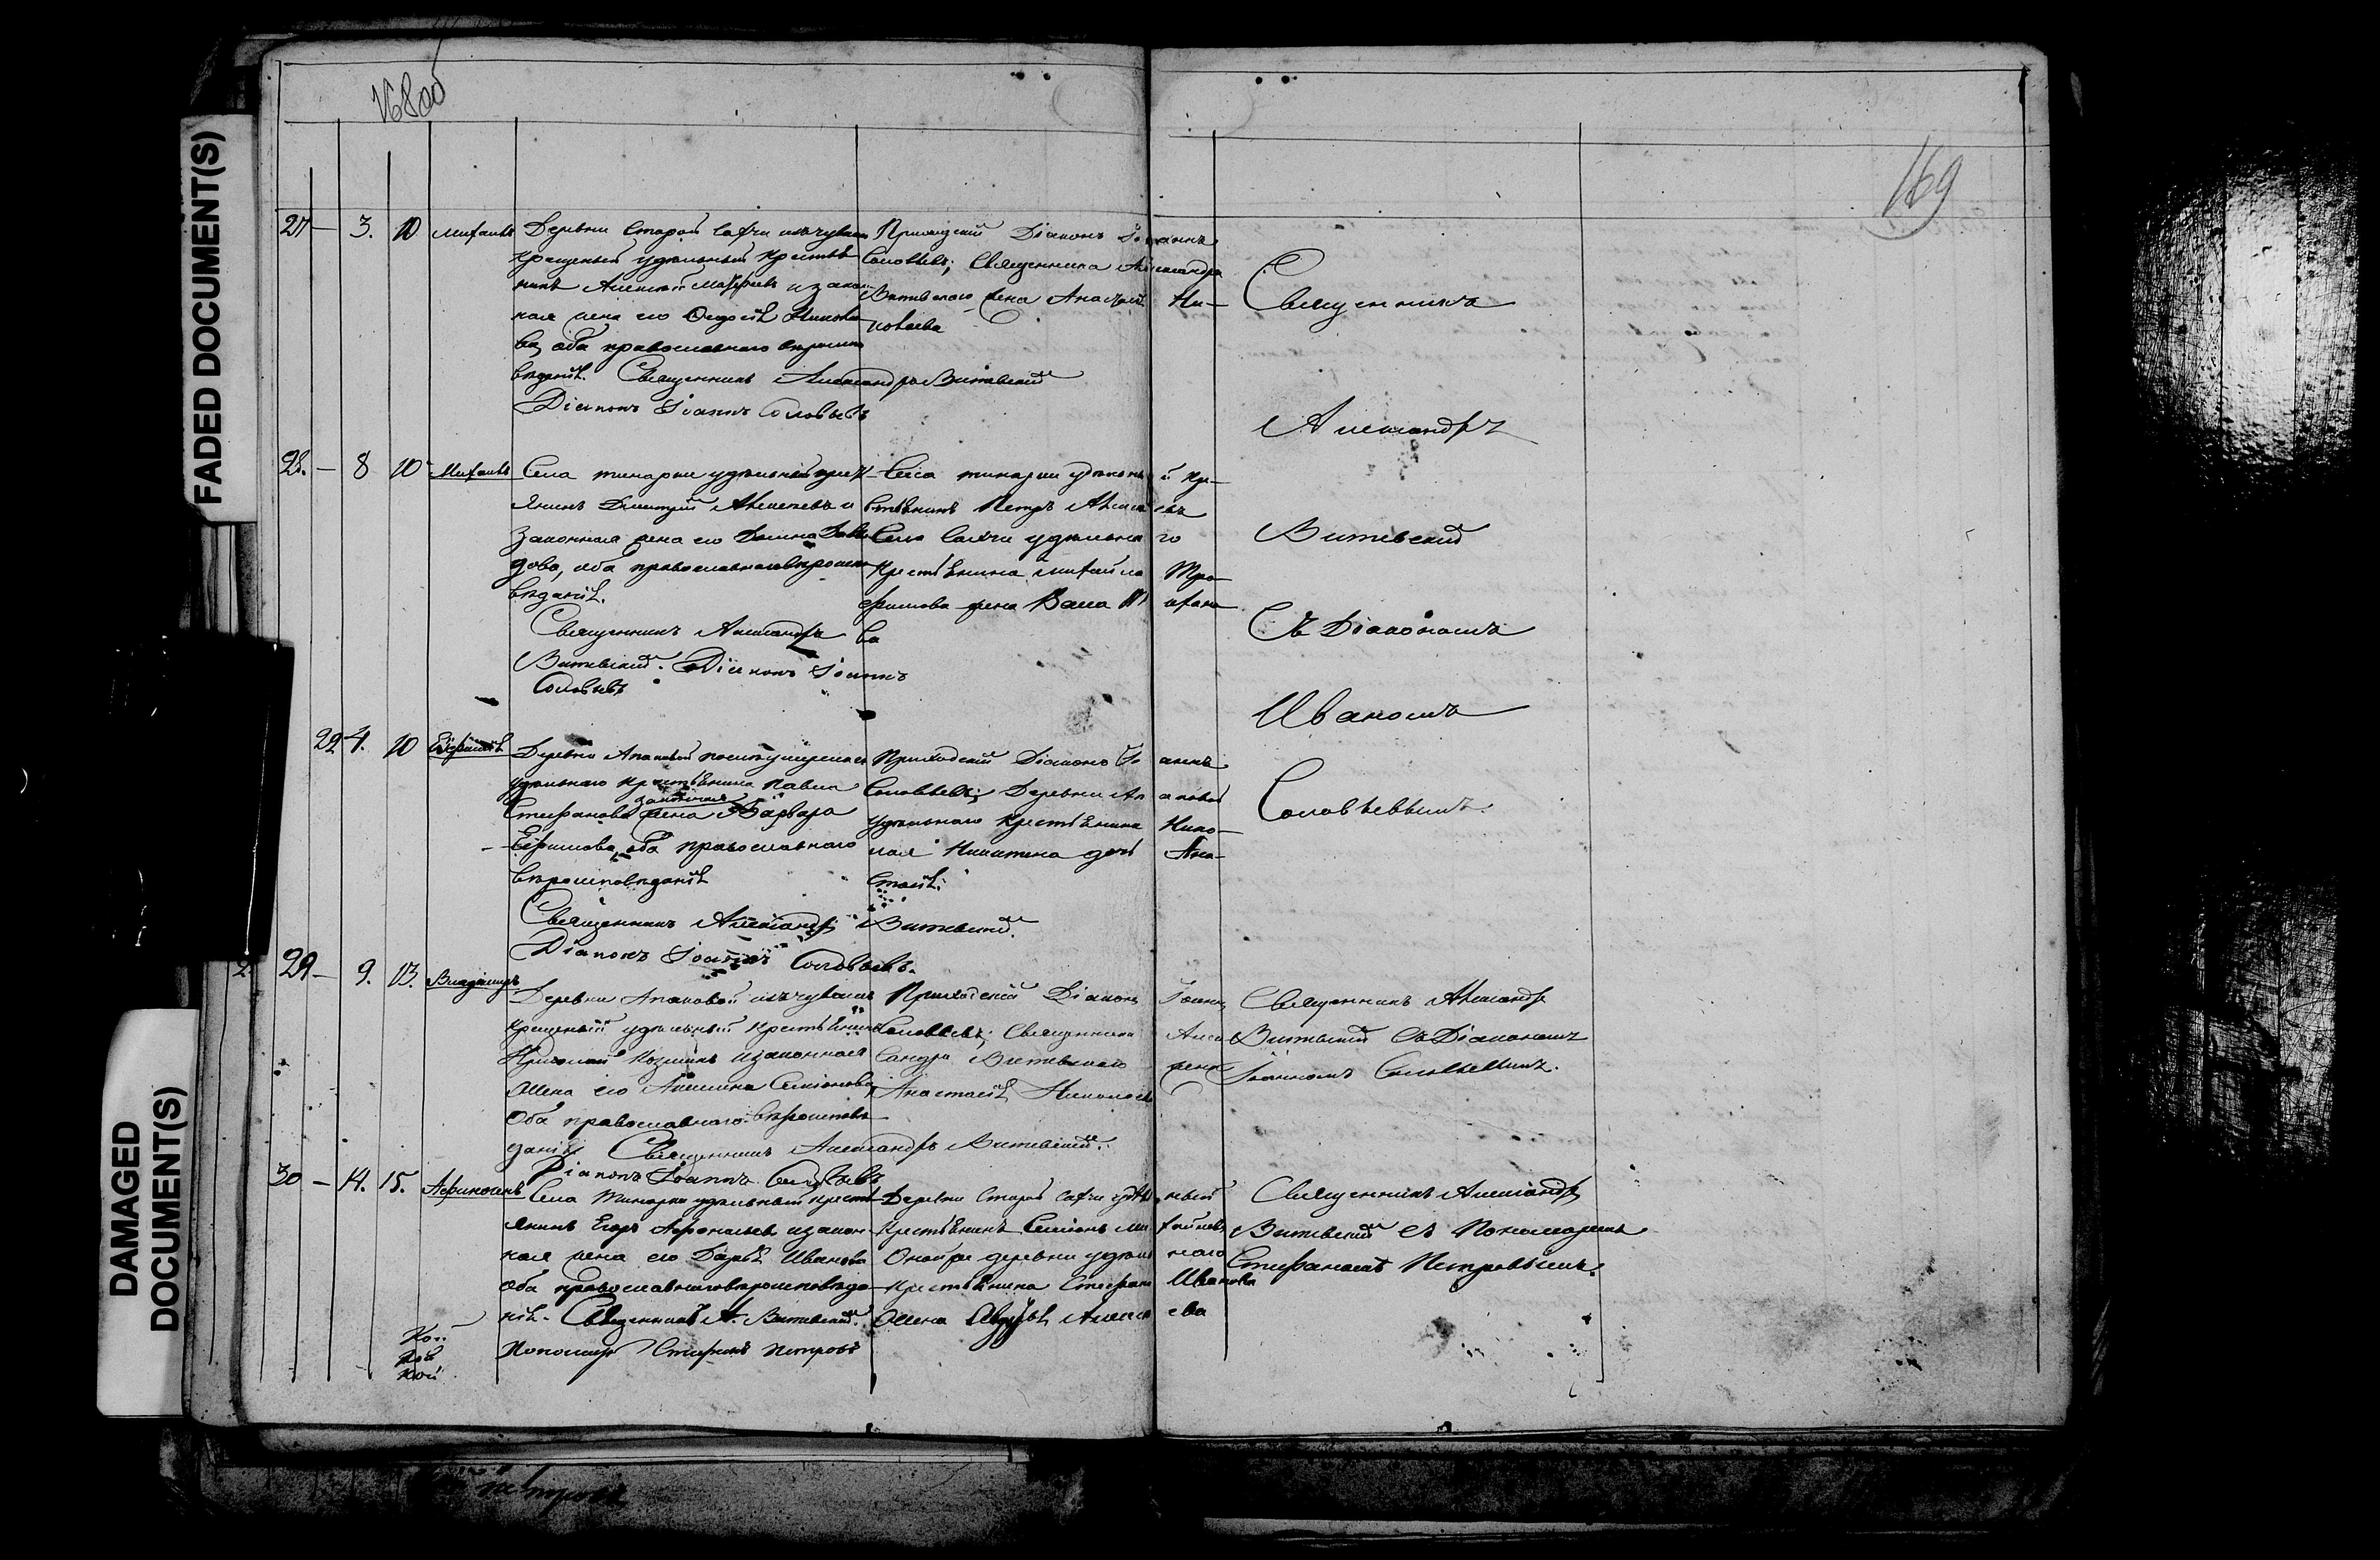 168 об
169
FADED DOCUMENT(S)
DAMAGED DOCUMENT(S)
27 — 3. 10 Михаилъ
Деревни Старой Савчи изъ чувашъ
крещеный удѣльный крестья
нинъ Алексѣй Матѳѣевъ и закон
ная жена его Николае
ва, оба православнаго вѣроиспо
вѣданія. Священникъ Александръ Витевскій
Діаконъ Іоаннъ Соловьевъ
Приходскій Діаконъ Іоаннъ
Соловьевъ; Священника Александра
Витевскаго жена Анастасія Ни-
колаева
Священникъ
Александръ
Витевскій
Съ Діакономъ
Иваномъ
Соловьевымъ.
28. — 8 10 Михаилъ
Села удѣльный крест
янинъ Дмитрій Алексѣевъ и
законная жена его Давы
дова, оба православнаго вѣроиспо
вѣданія.
Священникъ Александръ
Витевскій. Діаконъ Іоаннъ
Соловьевъ
Села удѣльный кре-
стьянинъ Петръ Алексѣевъ
Села удѣльнаго
крестьянина Михаила Тро-
фимова жена
ва
29 4. 10 Евфимія
Деревни Апаковой послѣ умершаго
удѣльнаго крестьянина Павла
Стефанова законная жена Варвара
Ефимова, оба православнаго
вѣроисповѣданія
Священникъ Александръ Витевскій.
Діаконъ Іоаннъ Соловьевъ.
Приходскій Діаконъ Іоаннъ
Соловьевъ; Деревни Апаковой
удѣльнаго крестьянина Нико-
лая Никитина дочь Ана-
стасія.
29 — 9. 13. Владиміръ
Деревни Апаковой изъ чувашъ
крещеный удѣльный крестьянинъ
Николай Козминъ и законная
жена его Акилина Семіонова,
Оба православнаго вѣроисповѣ
данія Священникъ Александръ Витевскій.
Діаконъ Іоаннъ Соловьевъ
Приходскій Діаконъ Іоаннъ
Соловьевъ; Священника Алек
сандра Витевскаго жена
Анастасія Николаева
Священникъ Александръ
Витевскій съ Діакономъ
Іоанномъ Соловьевымъ.
30 — 14. 15. Афиногенъ
Села удѣльный кресть
янинъ Егоръ Афонасьевъ и закон
ная жена его Дарья Иванова
оба православнаго вѣроисповѣда
нія. Священникъ А. Витевскій.
Пономарь Стефанъ Петровъ
Деревни Старой Савчи удѣльный
Крестьянинъ Семіонъ Михайловъ
Оной же деревни удѣльнаго
Крестьянина Стефана Иванова
Жена Авдотья Алексѣева
Священникъ Александръ
Витевскій съ Пономаремъ
Стефаномъ Петровымъ.